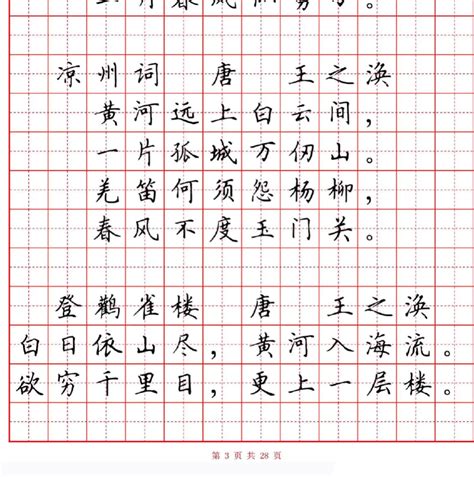 凉州词 唐 王之涣
黄河远上白云间，
一片孤城万仞山。
羌笛何须怨杨柳，
春风不度玉门关。
登鹳雀楼 唐 王之涣
白日依山尽，黄河入海流。
欲穷千里目，更上一层楼。
第 3 页 共 28 页